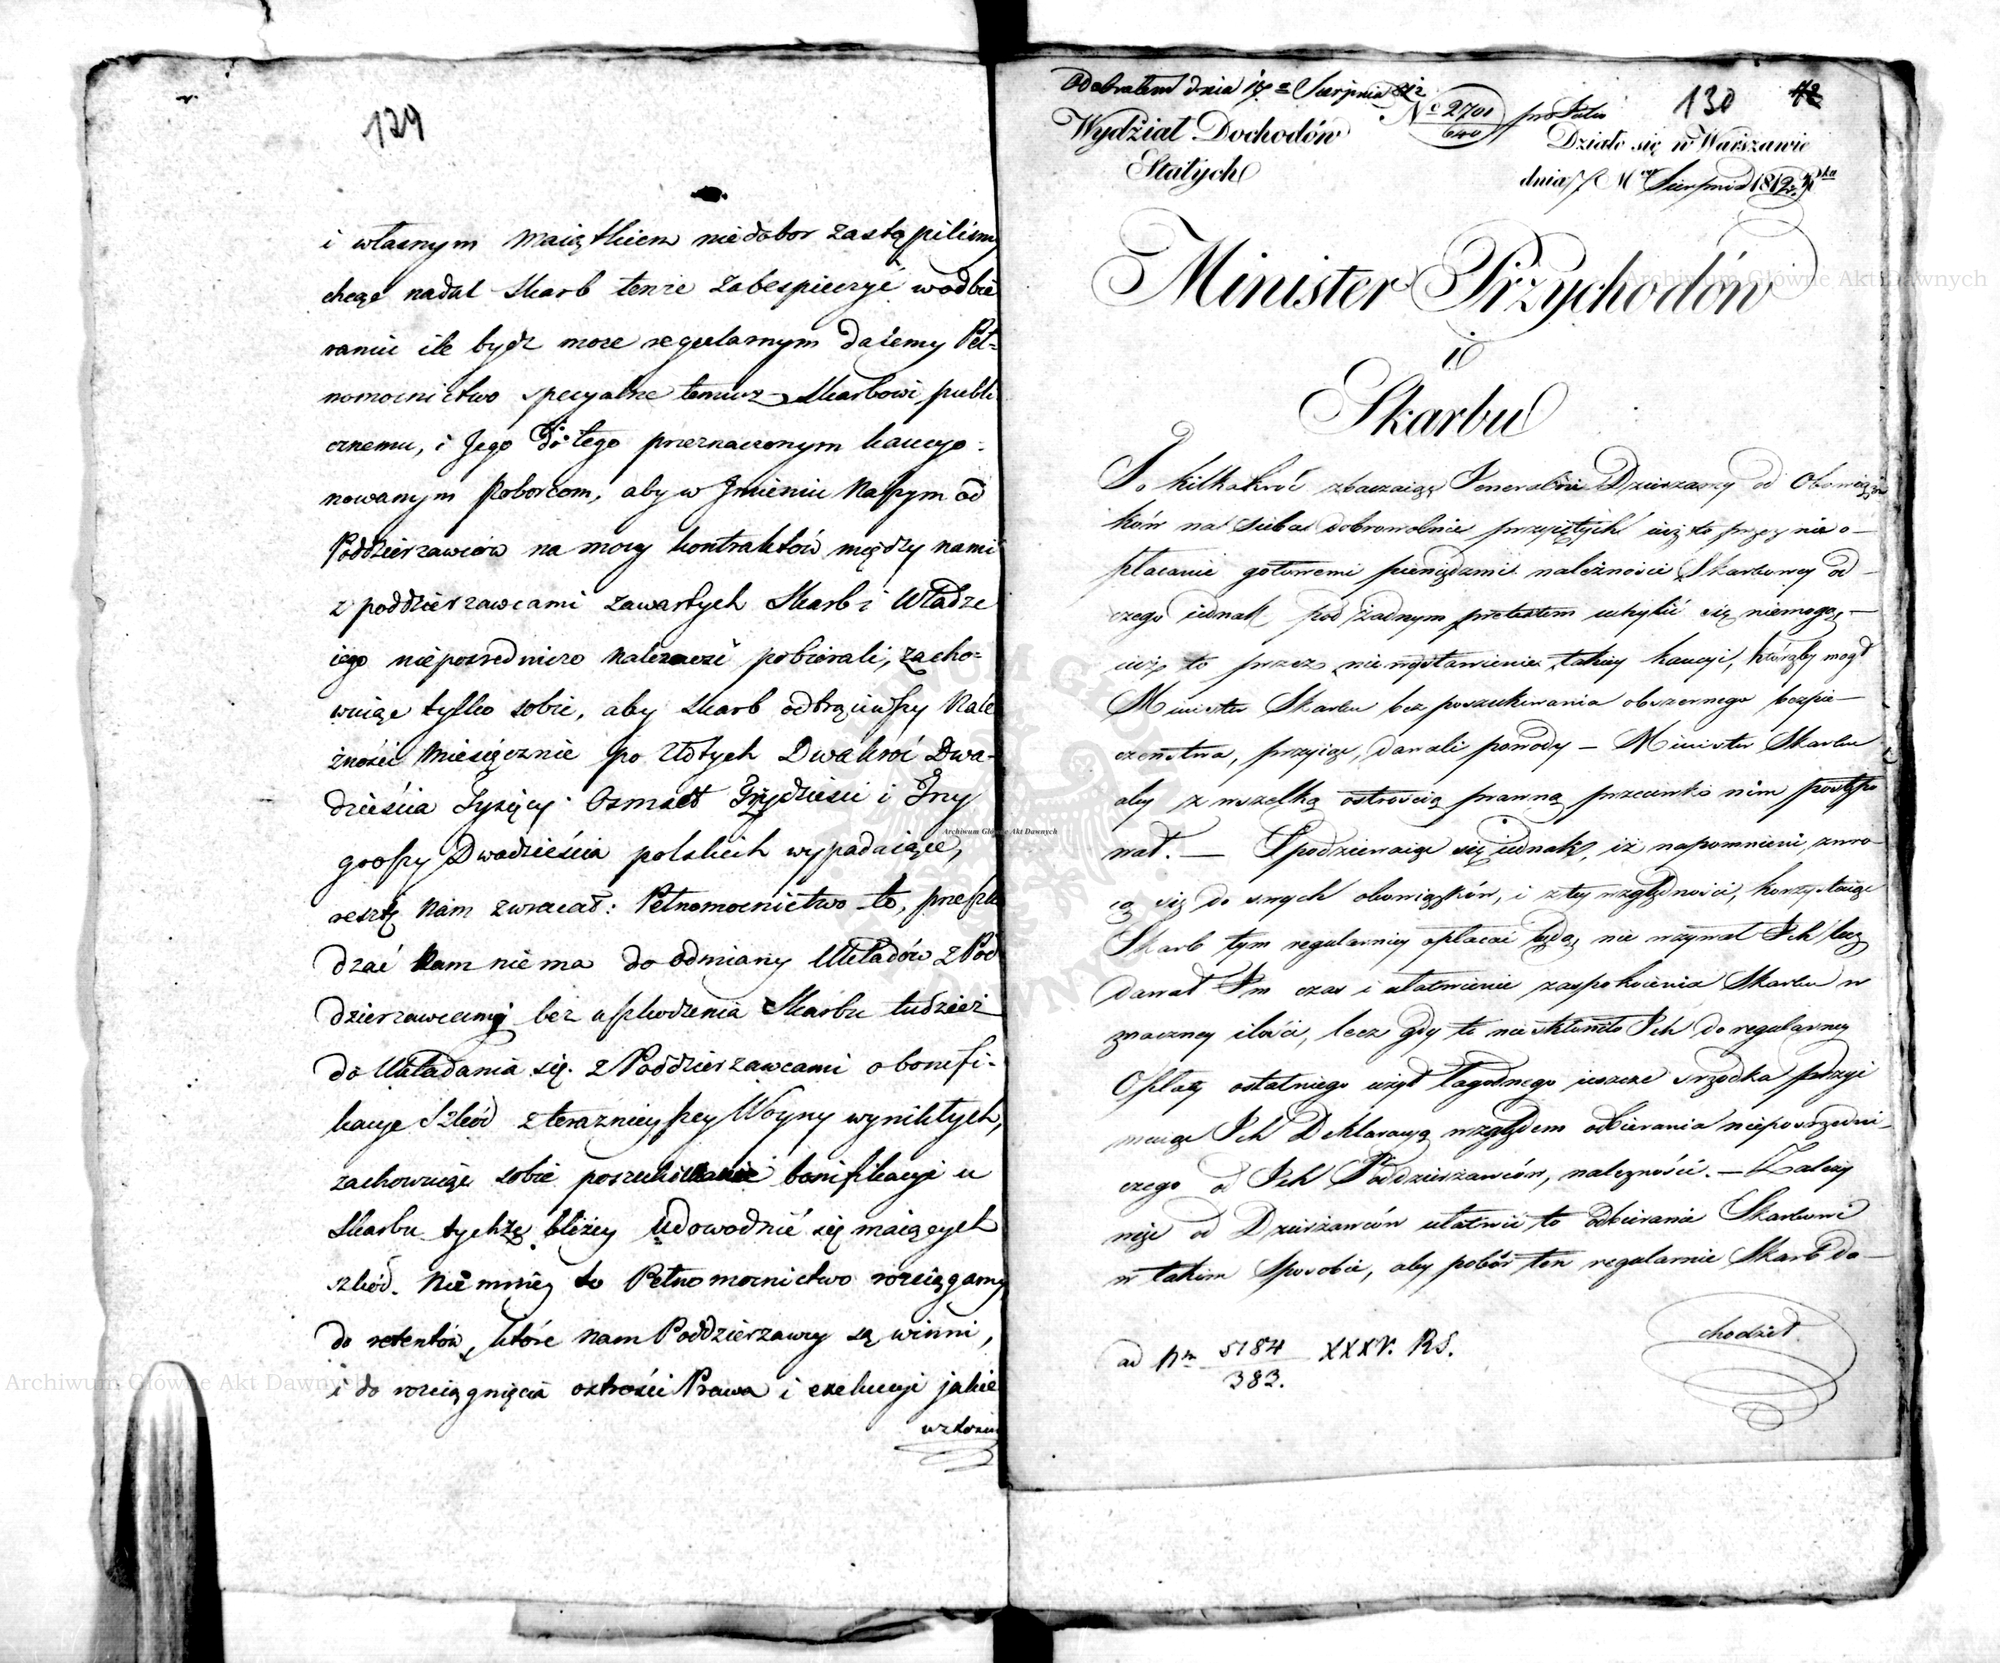 129
i własnym Maiątkiem niedobor zastąpilismy
chcąc nadal Skarb tenże zabespieczyć w odbie
raniu ile bydz może regularnym daiemy Peł-
nomocnictwo specyalne temuż Skarbowi publi
cznemu, i Jego do tego przeznaczonym kaucyo-
nowanym Poborcom, aby w Jmieniu Naszym od
Poddzierzawców na mocy kontraktów między nami
z poddzierzawcami zawartych Skarb i Władze
iego niepośrednicze Należność pobierali, zacho-
wuiąc tylko sobie, aby Skarb odtrąciwszy Nale
żność Miesięcznie po Złotych Dwakroć Dwa-
dzieścia Tysięcy Osmset Trzydzieści i Trzy
groszy Dwadzieścia polskich wypadaiące,
resztę Nam zwracał: Pełnomocnictwo to, przeszka
dzać Nam nie ma do odmiany Układów z Pod
dzierzawcami bez uszkodzenia Skarbu tudzież
do Układania się z Poddzierzawcami o bonifi-
kacye Szkód z teraznieyszey Woyny wynikłych,
zachowuiąc sobie poszukiwanie bonifikacyi u
Skarbu tychże bliżey udowodnić się maiących
szkód. Nie mniey to Pełnomocnictwo rozciągamy
do retentów, które nam Poddzierzawcy są winni,
i do rozciągnięcia ostrości Prawa i exekucyi jakie
Odebrałem dnia 17 Sierpnia 812
Wydział Dochodów
Stałych
No 2701
640
pro Julio
130
42
Działo się w Warszawie
dnia 7 Mca Sierpnia 1812 Rku
Minister Przychodów
i
Skarbu
Po kilkakroć zbaczaiąc Jeneralni Dzierzawcy od Obowiąz
ków na siebie dobrowolnie przyiętych iuż to przez nie o-
płacanie gotowemi pieniędzmi należności Skarbowey od
czego iednak pod żadnym pretextem uchylić się niemogą,
iuż to przez niewystawienie takiey kaucyi, którąby mógł
Minister Skarbu bez poszukiwania obszernego bezpie-
czeństwa, przyiąć, dawali powody – Minister Skarbu
aby z wszelką ostrością prawną przeciwko nim postępo
wał. – Spodziewaiąc się iednak, iż napomnieni, zwro-
cą się do swych obowiązków, i z tey względności, korzystaiąc
Skarb tym regularniey opłacać będą, nie wzywał Ich lecz
dawał Im czas i ułatwienie zaspokoienia Skarbu w
znaczney ilości, lecz gdy to nie skłoniło Ich do regularney
Opłaty ostatniego użył łagodnego ieszcze środka
Ich Deklaracyą względem odbierania niepośrzedni-
czego od Ich Poddzierżawców, należności. – Zależy
więc od Dzierżawców ułatwić to odbieranie Skarbowi
w takim Sposobie, aby pobór ten regularnie Skarb do-
chodził.
ad Nr 5184 XXXV. RS.
383.
Archiwum Główne Akt Dawnych
Archiwum Główne Akt Dawnych
Archiwum Główne Akt Dawnych